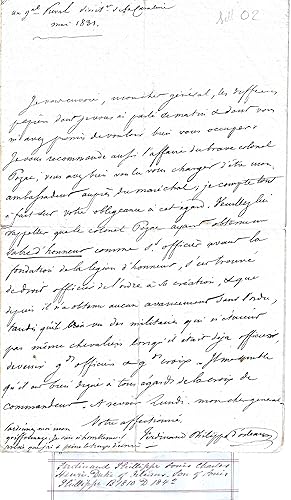 au gal Préval direct. de la Cavalerie
mai 1831.
Je vous envoie, mon cher général, les différens
papiers dont je vous ai parlé ce matin & dont vous
m'avez promis de vouloir bien vous occuper.
Je vous recommande aussi l'affaire du brave colonel
vous avez bien voulu vous charger d'être mon
ambassadeur auprès du maréchal, je compte tout
à fait sur votre obligeance à cet égard. Veuillez lui
rappeler que le colonel ayant obtenu un
sabre d'honneur comme s. officier avant la
fondation de la légion d'honneur, s'est trouvé
de droit officier de l'ordre à sa création, & que
depuis il n'a obtenu aucun avancement dans l'ordre,
tandis qu'il a vu des militaires qui n'étaient
pas même chevaliers lorsqu'il était déjà officier
devenir gds officiers & gds croix. Il me semble
qu'il est bien digne à tous égards de la croix de
commandeur. À revoir lundi. mon cher général
Votre affectionné.
Ferdinand Philippe d'Orléans
pardonnez mon
griffonnage, je suis
Ferdinand Phillippe Louis Charles
Henri Duke of Orleans, Son of Louis
Phillippe B 1810 D 1842